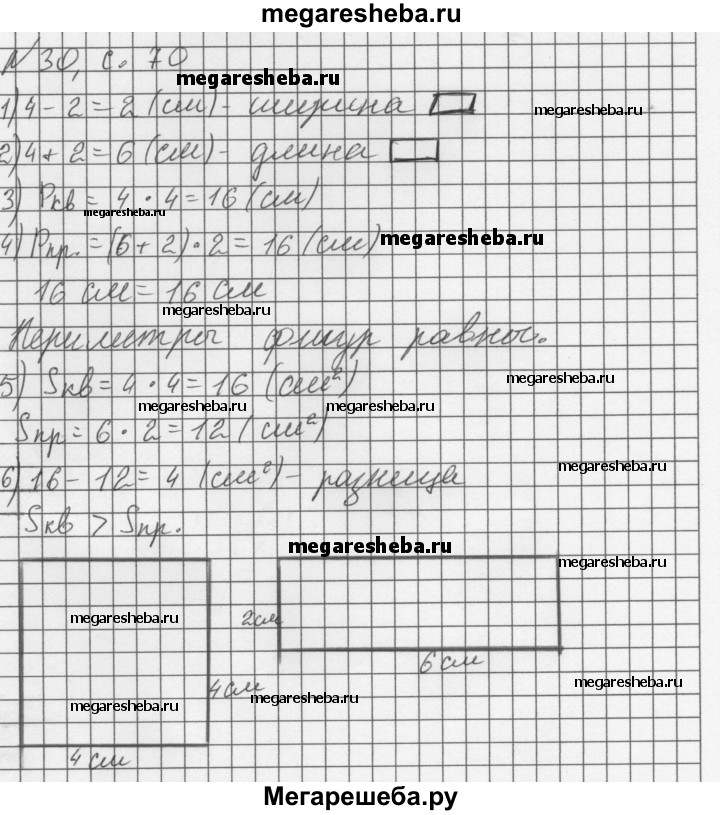 megaresheba.ru
№ 30, с. 70
megaresheba.ru
1) 4 - 2 = 2 (см) - ширина
megaresheba.ru
2) 4 + 2 = 6 (см) - длина
3) Pкв = 4 · 4 = 16 (см)
megaresheba.ru
4) Pпр. = (6 + 2) · 2 = 16 (см)
megaresheba.ru
16 см = 16 см
megaresheba.ru
Периметры фигур равны.
5) Sкв = 4 · 4 = 16 (см²)
megaresheba.ru
megaresheba.ru megaresheba.ru
Sпр = 6 · 2 = 12 (см²)
megaresheba.ru
6) 16 - 12 = 4 (см²) - разница
Sкв > Sпр.
megaresheba.ru
megaresheba.ru
megaresheba.ru
2см
6 см
4 см
megaresheba.ru
megaresheba.ru
megaresheba.ru
4 см
Мегарешеба.ру